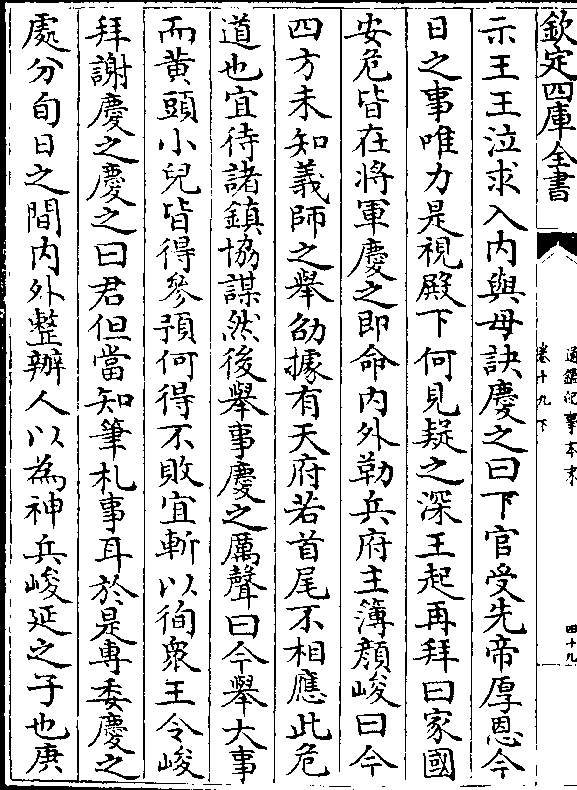 欽定四庫全書
通鑑紀事本末
卷十九下
四十九
示王王泣求入內與母訣慶之曰下官受先帝厚恩今
日之事唯力是視殿下何見疑之深王起再拜曰家國
安危皆在將軍慶之即命內外勒兵府主簿顏峻曰今
四方未知義師之舉劭據有天府若首尾不相應此危
道也宜待諸鎮協謀然後舉事慶之厲聲曰今舉大事
而黃頭小兒皆得參預何得不敗宜斬以徇衆王令峻
拜謝慶之慶之曰君但當知筆札事耳於是專委慶之
處分旬日之間內外整辦人以為神兵峻延之子也庚